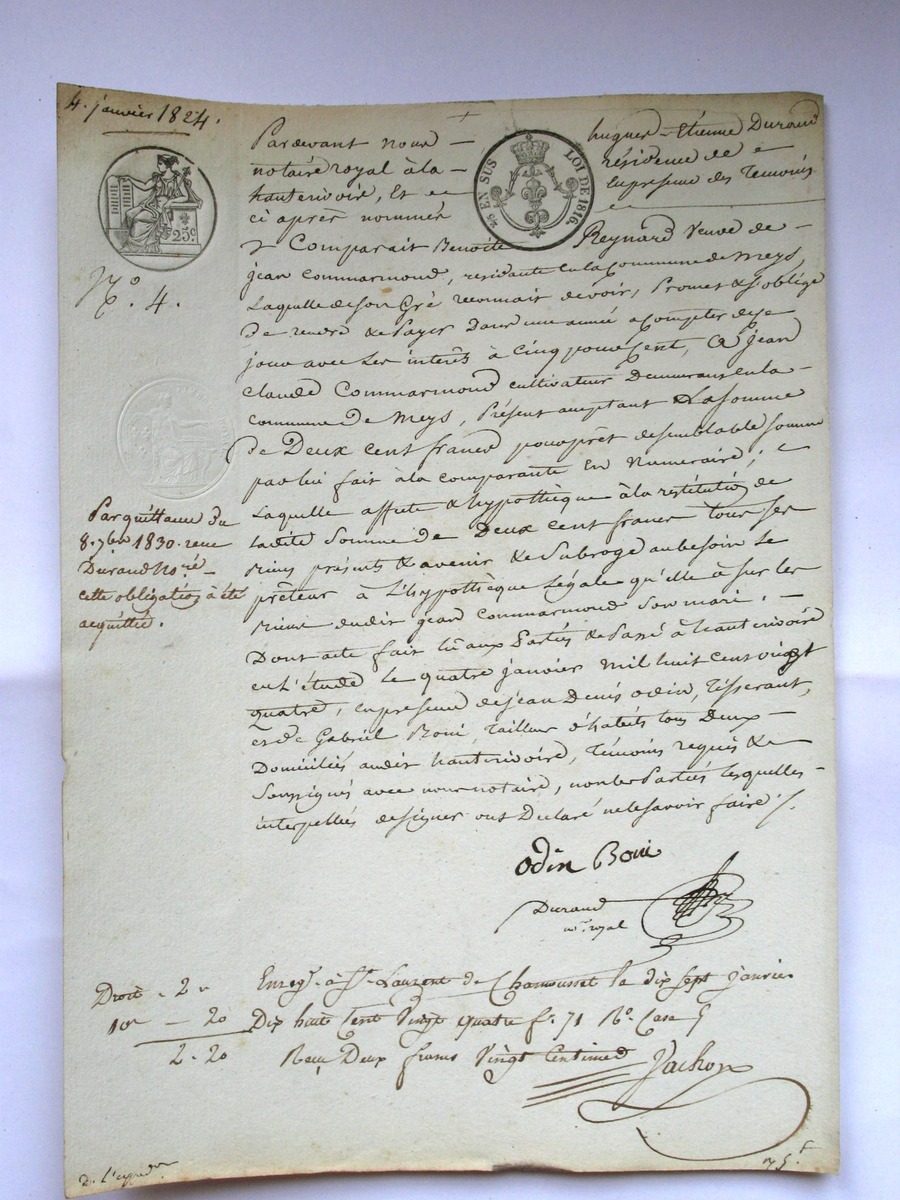 4. janvier 1824.
25c.
EN SUS
LOI DE 1816.
No. 4.
Pardevant nous hugues-Etienne Durand
notaire royal à la résidence de
hauterivoire, Et en la presence des Temoins
ci après nommés
Comparait Benoite Reynard Veuve de
jean Commarmond, residante en la Commune de Meys,
Laquelle de son Gré reconnait devoir, Promet & s'oblige
de rendre & Payer Dans une année a Compter de ce
jour avec les interêts à Cinq pour Cent, à jean
Claude Commarmond cultivateur Demeurant en la
commune de Meys, Présent acceptant La somme
de Deux cent francs pour prêt de semblable somme
par lui fait à la comparante En Numeraire;
Laquelle affecte & hypothèque à la restitution de
ladite Somme de Deux cent francs tous ses
Biens présents & avenir & Subroge au besoin le
prêteur à L'hypothèque Légale qu'elle à sur les
Biens dudit jean Commarmond Son mari.
Dont acte fait lû aux Parties & Passé à hauterivoire
en L'étude le quatre janvier Mil huit cent vingt
quatre, en presence de jean Denis Odin, Tisserant,
et de Gabriel Boni, Tailleur d'habits tous Deux
Domiciliés audit hauterivoire, Témoins requis &
Soussignés avec nous notaire, non les Parties lesquelles
interpellés de signer ont Déclaré ne le savoir faire
Par quittance du
8. 7bre 1830. recue
Durand Nore
cette obligation à été
acquittée.
Odin Boni
Durand
nre royal
Droit - 2 "
10e - 20
2 - 20
Enregt. à St. Laurent de Chamousset le dix sept janvier
Dix huit Cent Vingt quatre fo. 71 Ro. Case 5
Recu Deux francs Vingt Centimes Vachon